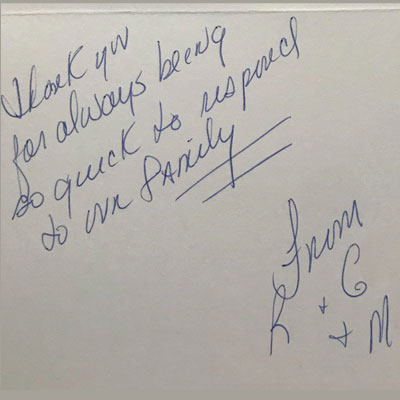 Thank you
for always being
so quick to respond
to our family
From
K + C
+ M